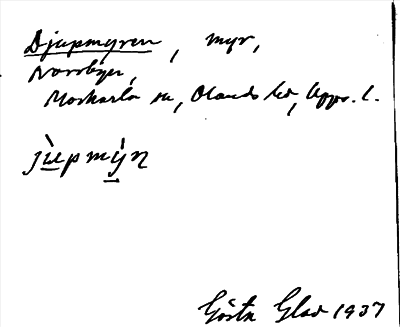 Djupmyren, myr,
Norrbyn,
Morkarla sn, Olands hd, Upps. l.
jùpmỳn
Gösta Glad 1937